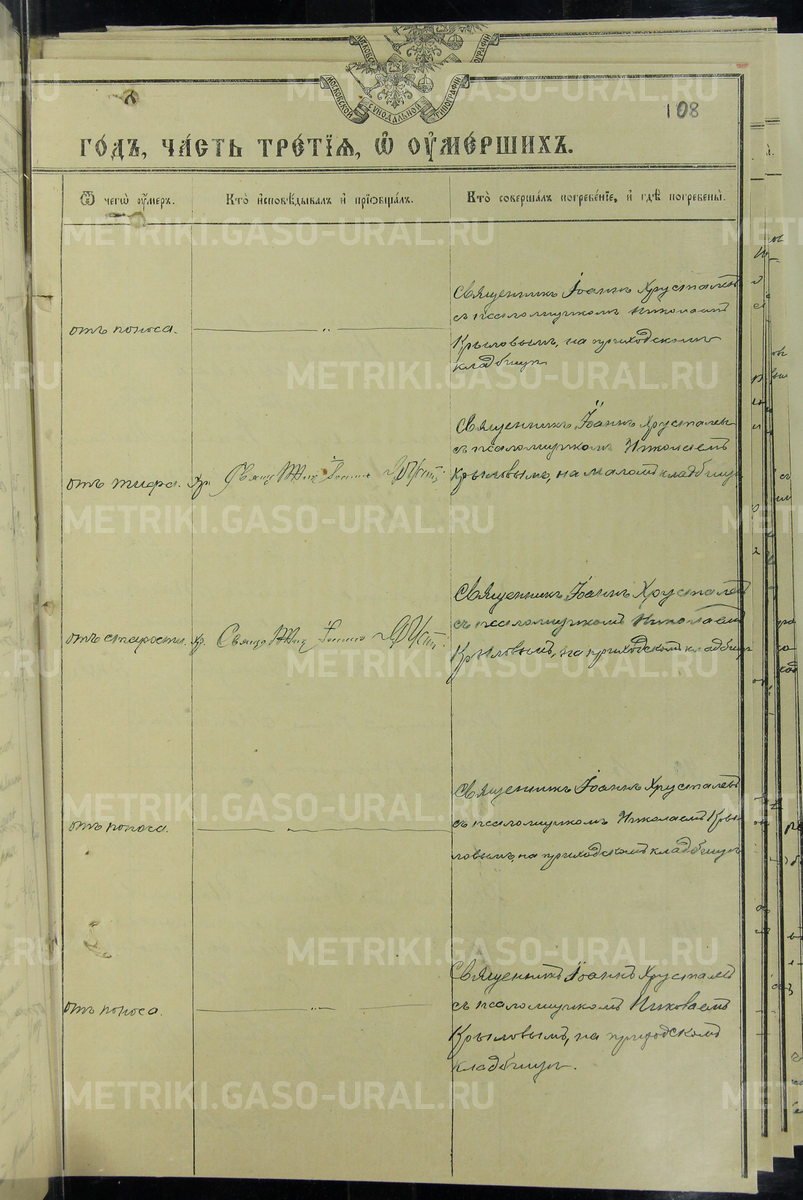 МОСКОВСКОЙ СѴНОДАЛЬНОЙ ТИПОГРАФІИ
108
ГО́ДЪ, ЧА́СТЬ ТРЕ́ТІѦ, Ѡ ОУ҆МЕ́РШИХЪ.
Ѿ чегѡ̀ оу҆́меръ.
Кто̀ и҆сповѣ́дывалъ и҆ прїѡбща́лъ.
Кто̀ соверша́лъ погребе́нїе, и҆ гдѣ̀ погребены̀.
отъ поноса.
Священникъ Іоаннъ Хрусталевъ
съ псаломщикомъ Николаемъ
Крыловымъ, на приходскомъ
кладбищѣ
отъ тифа.
Священникъ Іоаннъ Хрусталев
съ псаломщикомъ Николаемъ
Крыловымъ, на кладбищѣ
отъ старости.
Священникъ Іоаннъ Хрусталевъ
съ псаломщикомъ Николаемъ
Крыловымъ, на приходскомъ кладбищѣ
отъ поноса.
Священникъ Іоаннъ Хрусталевъ
съ псаломщикомъ Николаемъ Кры-
ловымъ, на приходскомъ кладбищѣ
отъ поноса.
Священникъ Іоаннъ Хрусталевъ
съ псаломщикомъ Николаемъ
Крыловымъ, на приходскомъ
кладбищѣ.
METRIKI.GASO-URAL.RU